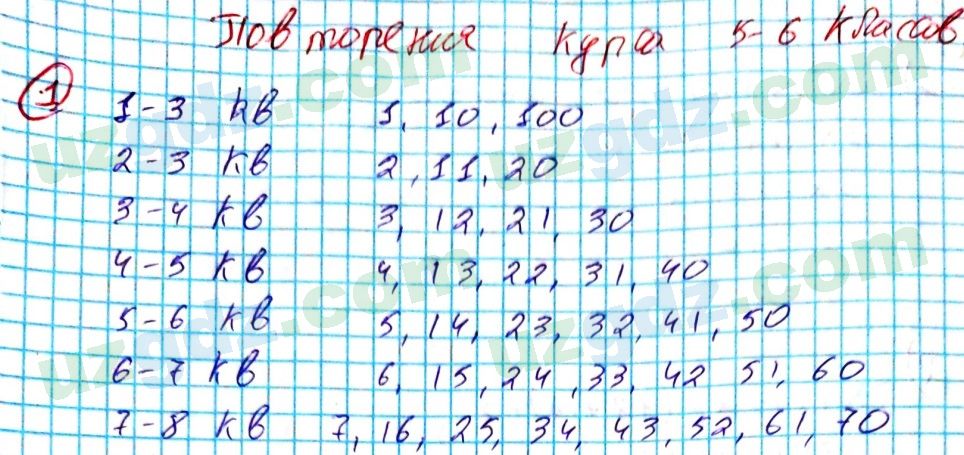 Повторения курса 5-6 классов.
1
1-3 кв 1, 10, 100
2-3 кв 2, 11, 20
3-4 кв 3, 12, 21, 30
4-5 кв 4, 13, 22, 31, 40
5-6 кв 5, 14, 23, 32, 41, 50
6-7 кв 6, 15, 24, 33, 42 51, 60
7-8 кв 7, 16, 25, 34, 43, 52, 61, 70
uzgdz.com
uzgdz.com
uzgdz.com
uzgdz.com